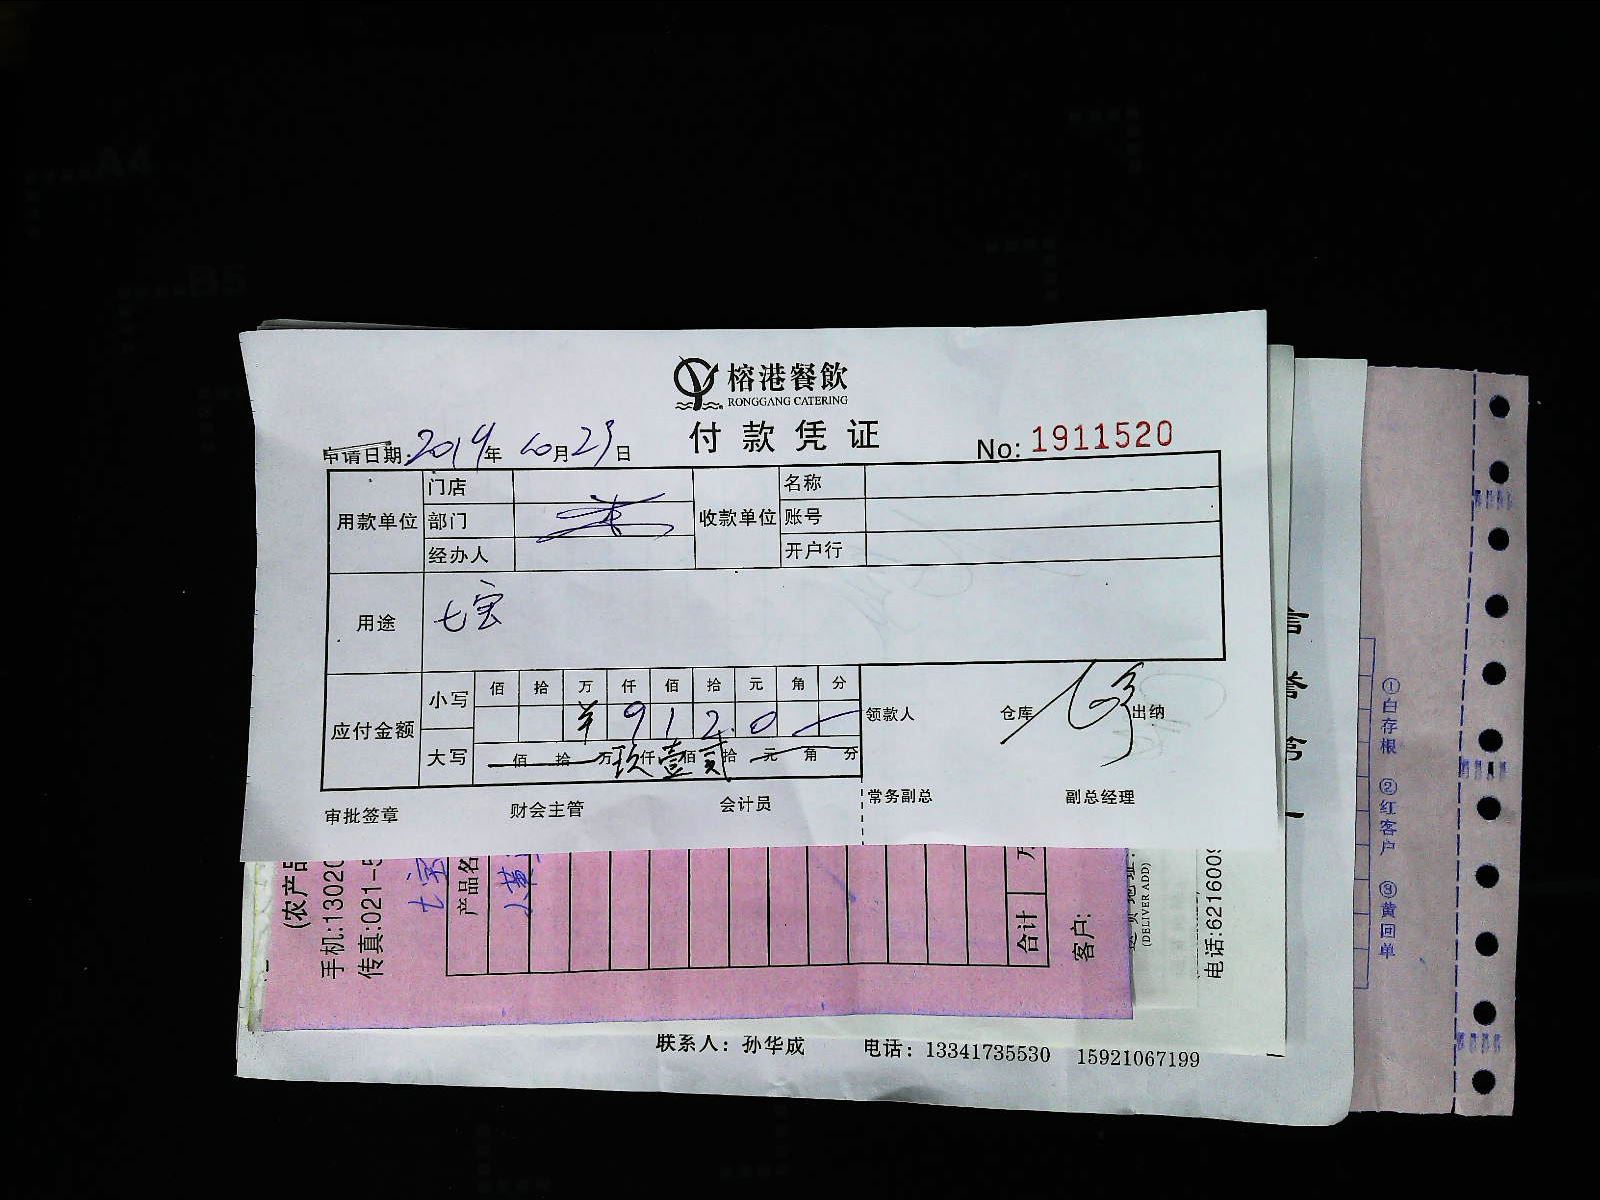 榕港餐飲
RONGGANG CATERING
付款凭证
No: 1911520
申请日期: 2019年10月23日
用款单位 门店 收款单位 名称
部门 账号
经办人 开户行
用途 七宝
应付金额 小写 佰 拾 万 仟 佰 拾 元 角 分
¥ 9 1 2. 0
大写 佰 拾 万 玖 仟 壹 佰 贰 拾 元 角 分
领款人 仓库 出纳
审批签章 财会主管 会计员 常务副总 副总经理
(农产品
手机:13020
传真:021-5
七宝
产品名
合计
万
客户:
(DELIVER ADD)
电话:6216009
联系人：孙华成 电话：13341735530 15921067199
信誉第一
①白存根 ②红客户 ③黄回单